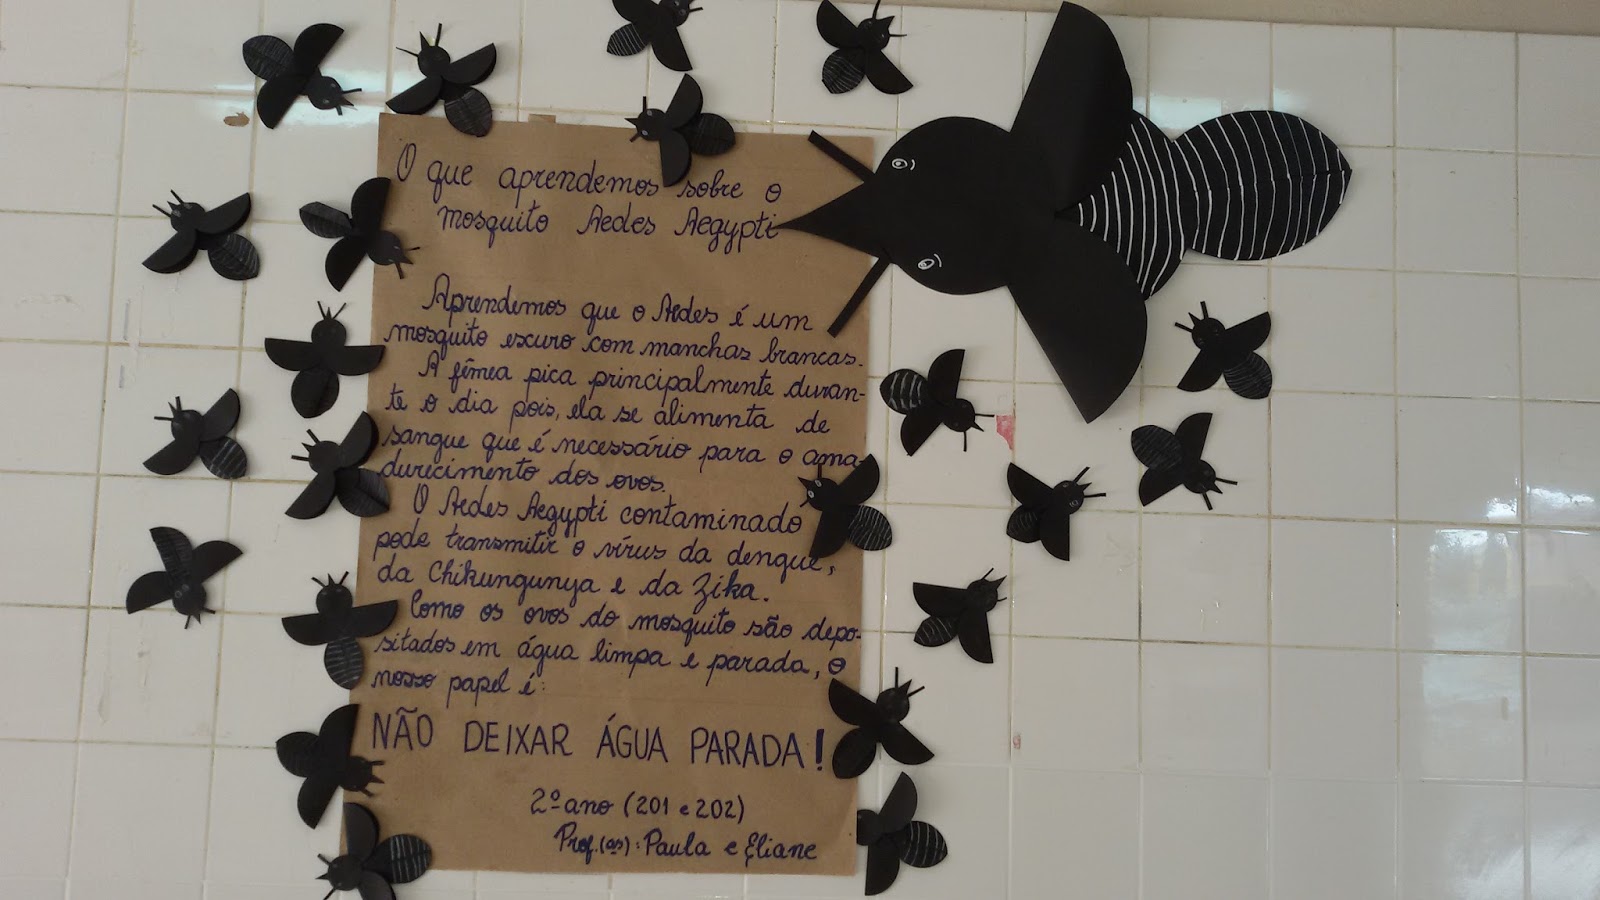 O que aprendemos sobre o
mosquito Aedes Aegypti
Aprendemos que o Aedes é um
mosquito escuro com manchas brancas.
A fêmea pica principalmente duran-
te o dia pois, ela se alimenta de
sangue que é necessário para o ama-
durecimento dos ovos.
O Aedes Aegypti contaminado
pode transmitir o vírus da dengue,
da Chikungunya e da Zika.
Como os ovos do mosquito são depo-
sitados em água limpa e parada, o
nosso papel é:
NÃO DEIXAR ÁGUA PARADA!
2º ano (201 e 202)
Prof.(as): Paula e Eliane